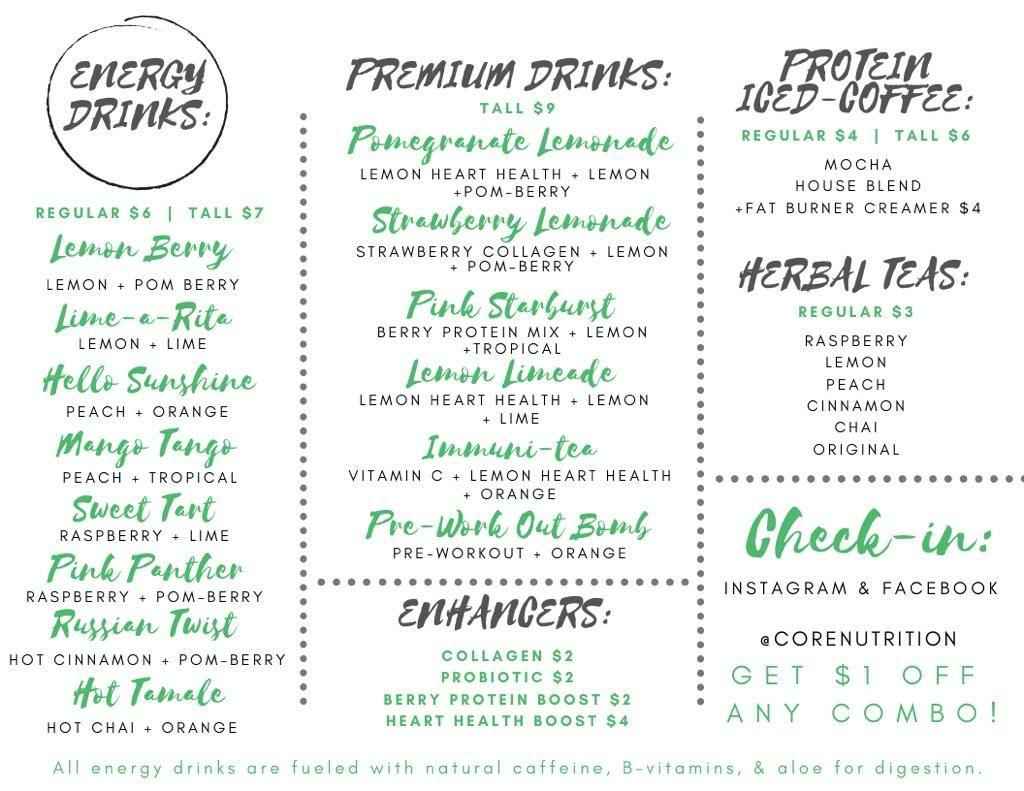 ENERGY
DRINKS:
REGULAR $6 | TALL $7
Lemon Berry
LEMON + POM BERRY
Lime-a-Rita
LEMON + LIME
Hello Sunshine
PEACH + ORANGE
Mango Tango
PEACH + TROPICAL
Sweet Tart
RASPBERRY + LIME
Pink Panther
RASPBERRY + POM-BERRY
Russian Twist
HOT CINNAMON + POM-BERRY
Hot Tamale
HOT CHAI + ORANGE
PREMIUM DRINKS:
TALL $9
Pomegranate Lemonade
LEMON HEART HEALTH + LEMON
+POM-BERRY
Strawberry Lemonade
STRAWBERRY COLLAGEN + LEMON
+ POM-BERRY
Pink Starburst
BERRY PROTEIN MIX + LEMON
+TROPICAL
Lemon Limeade
LEMON HEART HEALTH + LEMON
+ LIME
Immuni-tea
VITAMIN C + LEMON HEART HEALTH
+ ORANGE
Pre-Work Out Bomb
PRE-WORKOUT + ORANGE
ENHANCERS:
COLLAGEN $2
PROBIOTIC $2
BERRY PROTEIN BOOST $2
HEART HEALTH BOOST $4
PROTEIN
ICED-COFFEE:
REGULAR $4 | TALL $6
MOCHA
HOUSE BLEND
+FAT BURNER CREAMER $4
HERBAL TEAS:
REGULAR $3
RASPBERRY
LEMON
PEACH
CINNAMON
CHAI
ORIGINAL
Check-in:
INSTAGRAM & FACEBOOK
@CORENUTRITION
GET $1 OFF
ANY COMBO!
All energy drinks are fueled with natural caffeine, B-vitamins, & aloe for digestion.